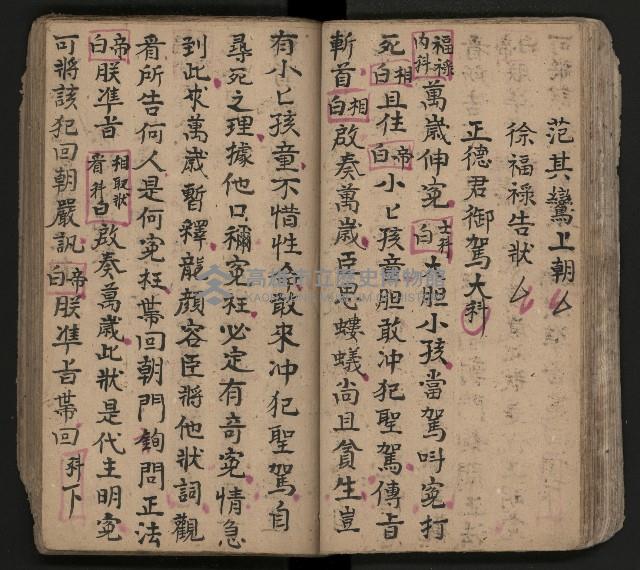 范其鸞上朝厶
徐福祿告狀厶
正德君御駕大科
福祿內科萬歲伸冤士科白大胆小孩當駕叫冤打
死相白且住帝白小匕孩童胆敢冲犯聖駕傳旨
斬首相白啟奏萬歲臣思螻蟻尚且貪生豈
有小匕孩童不惜性命敢來冲犯聖駕自
尋死之理據他口稱冤枉必定有奇冤情急
到此求萬歲暫釋龍顔容臣將他狀詞觀
看所告何人是何冤枉帶回朝門鞫問正法
帝白朕準旨相取狀看科白啟奏萬歲此狀是代主明冤
可將該犯回朝嚴訊帝白朕準旨帶回科下
高雄市立歷史博物館
KAOHSIUNG MUSEUM OF HISTORY